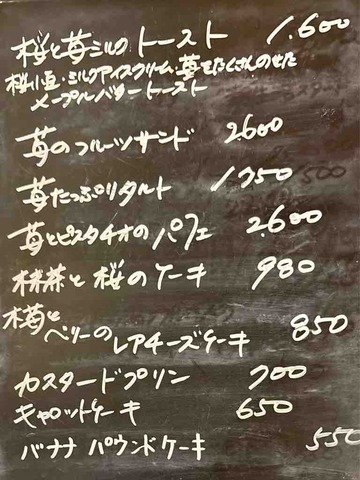 桜と苺ミルクトースト 1,600
桜小豆・ミルクアイスクリーム・苺をたくさんのせた
メープルバタートースト
苺のフルーツサンド 2600
苺たっぷりタルト 1750
苺とピスタチオのパフェ 2.600
抹茶と桜のケーキ 980
苺と
ベリーのレアチーズケーキ 850
カスタードプリン 700
キャロットケーキ 650
バナナパウンドケーキ 550